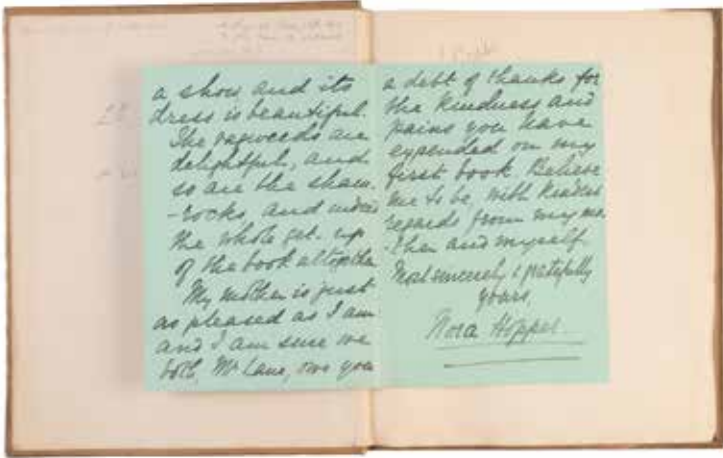 a show and its
dress is beautiful.
The ragweeds are
delightful, and
so are the sham-
-rocks, and indeed
the whole get-up
of the book altogether
My mother is just
as pleased as I am
and I am sure we
both, Mr Lane, owe you
a debt of thanks for
the kindness and
pains you have
expended on my
first book. Believe
me to be, with kindest
regards from my mo-
-ther and myself
Most sincerely & gratefully
yours,
Nora Hopper.